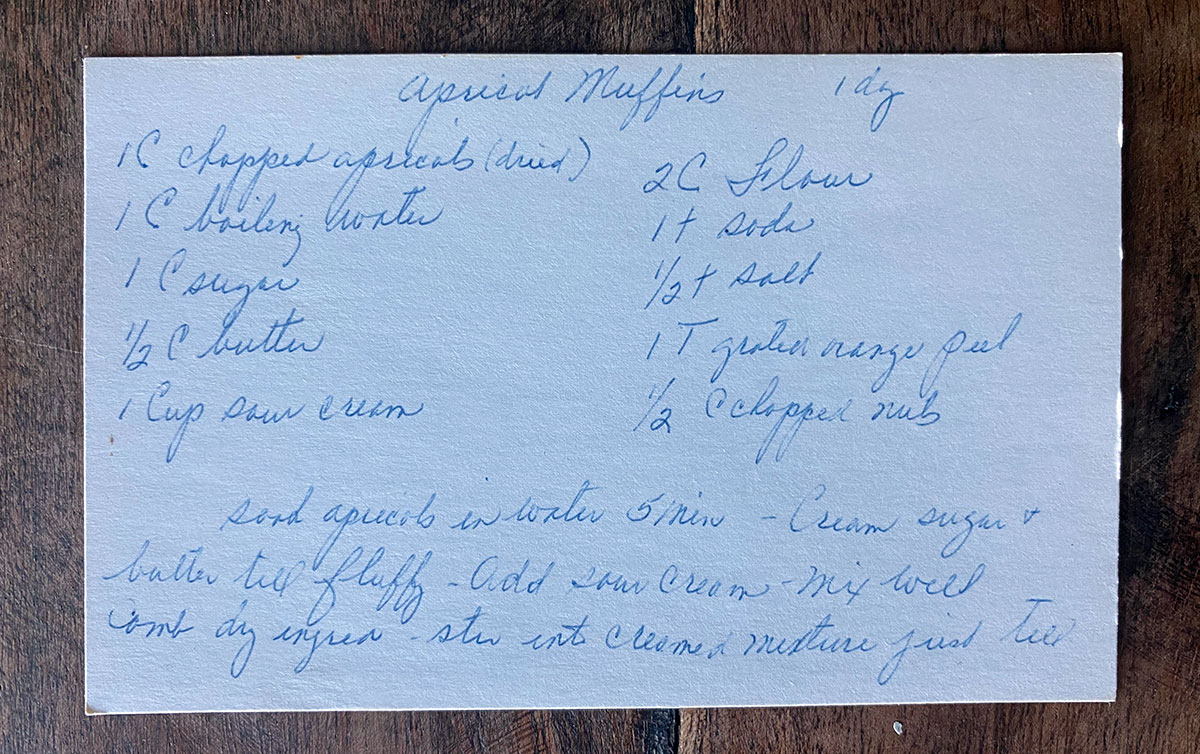 Apricot Muffins 1 dz
1 C chopped apricots (dried)
1 C boiling water
1 C sugar
1/2 C butter
1 Cup sour cream
2 C Flour
1 t soda
1/2 t salt
1 T grated orange peel
1/2 C chopped nuts
soak apricots in water 5 min - Cream sugar +
butter till fluffy - Add sour cream - Mix well
Comb dry ingred - stir into creamed mixture just till